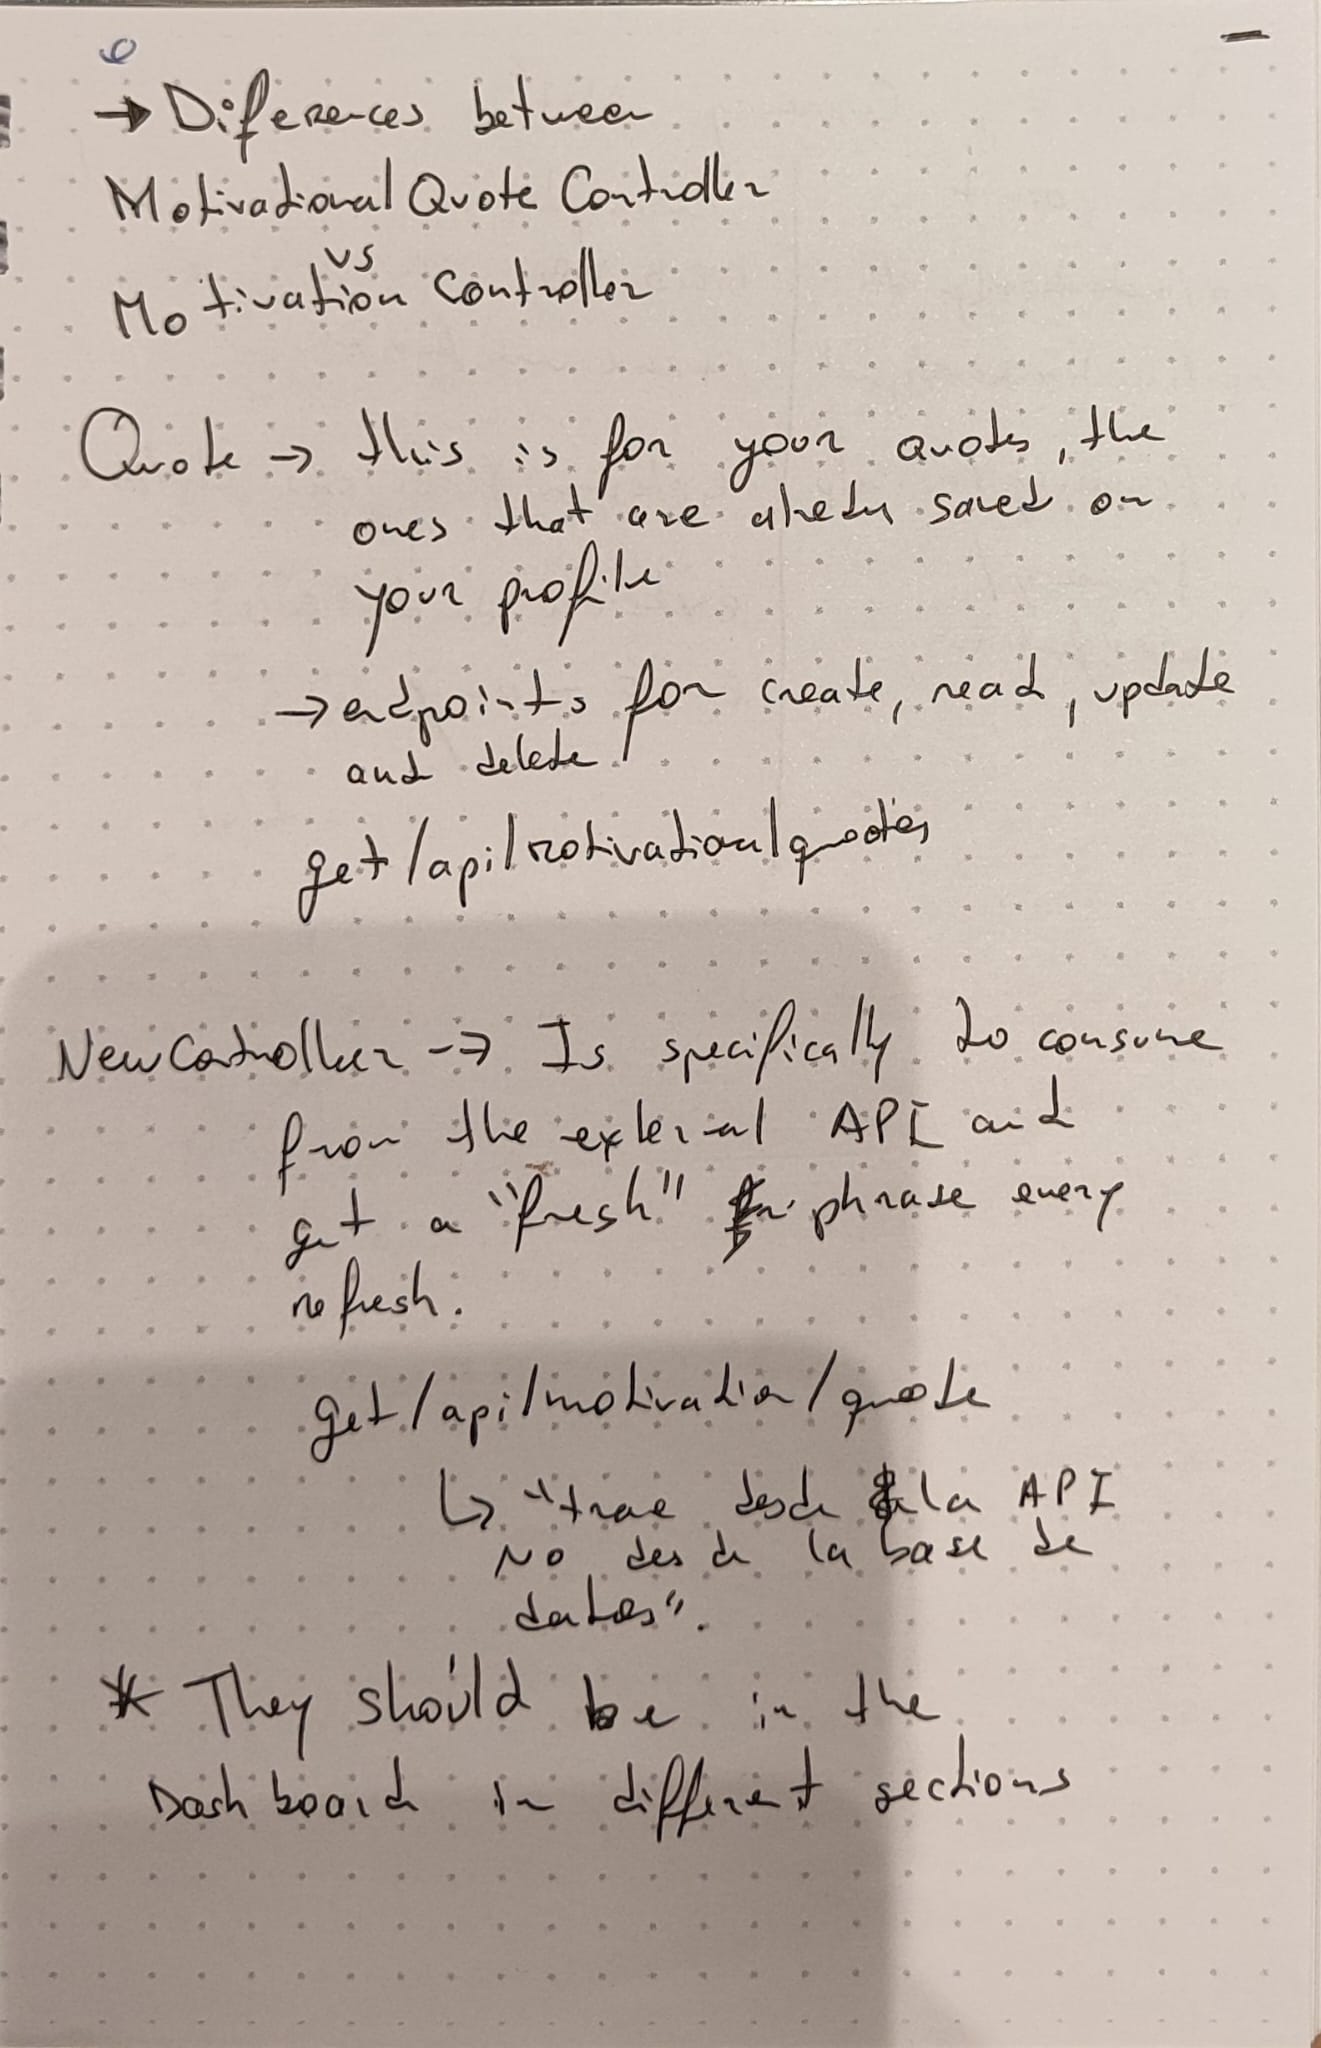 → Diferences between
Motivational Quote Controller
vs
Motivation Controller
Quote → this is for your quotes, the
ones that are alredy saved on
your profile
→ endpoints for create, read, update
and delete
get/api/motivationalquotes
New Controller → Is specifically to consume
from the external API and
get a "fresh" phrase every
refresh.
get/api/motivation/quote
↳ "trae desde la API
NO desde la base de
datos".
* They should be in the
Dashboard in different sections